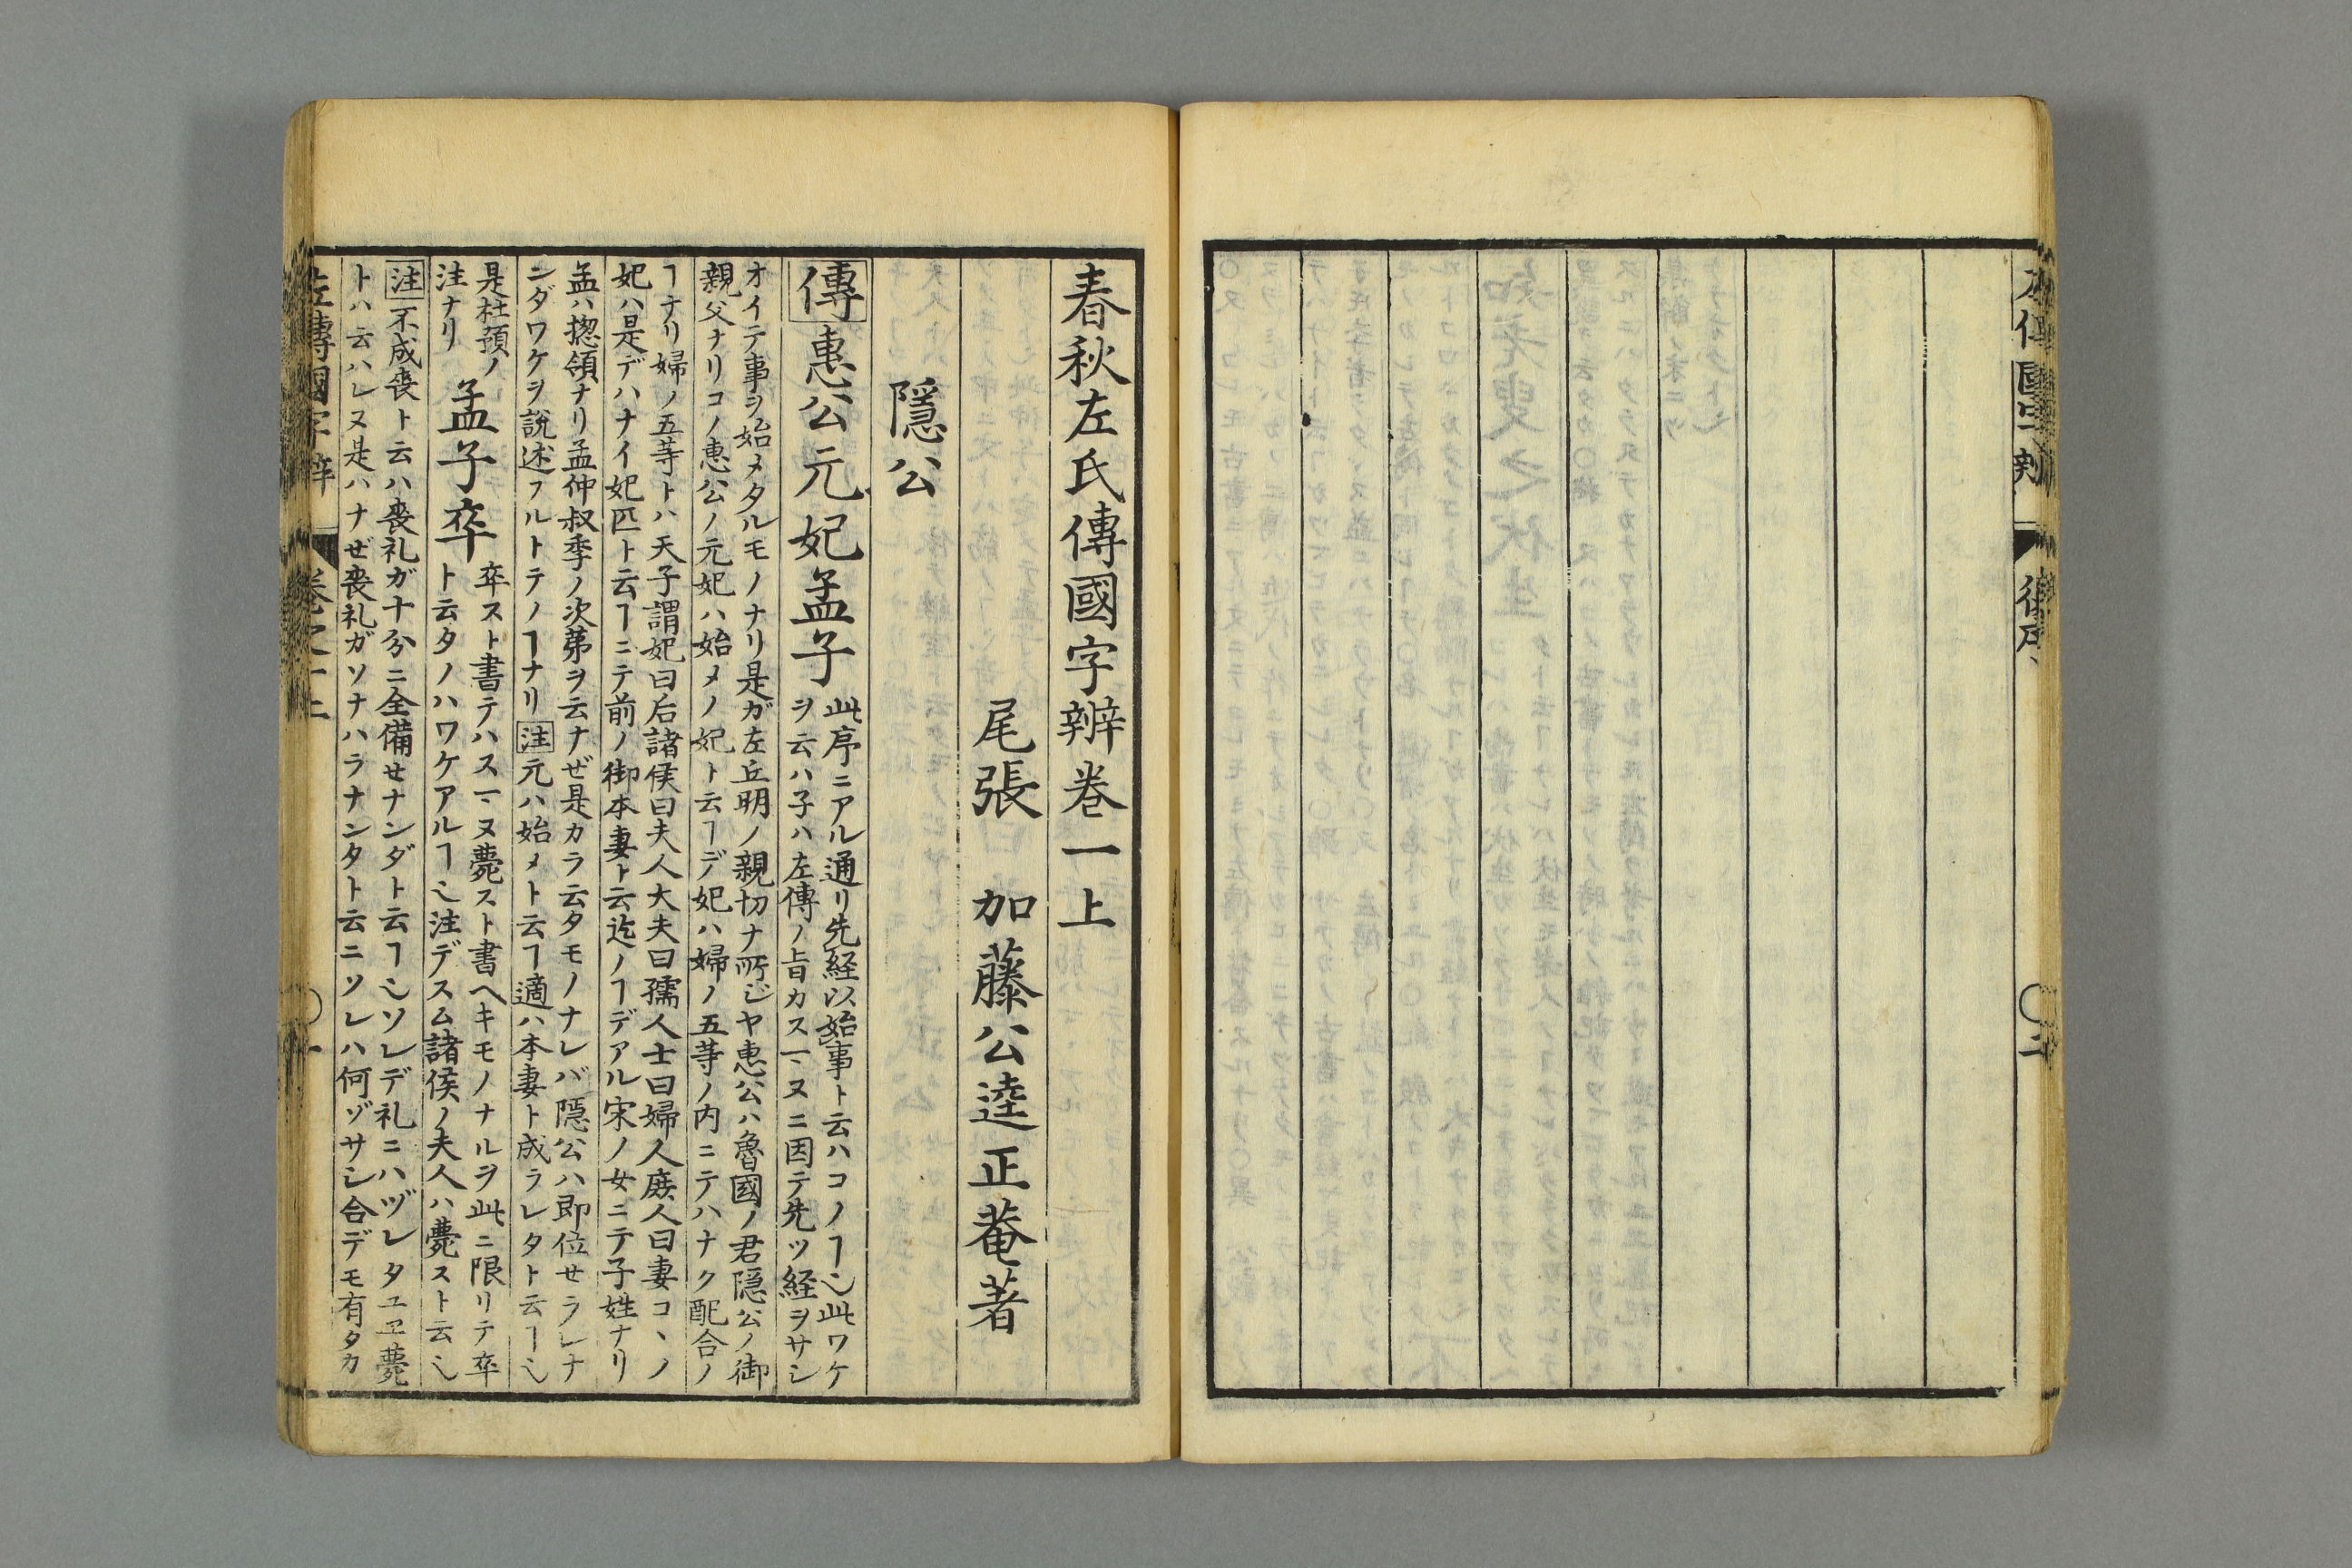 春秋左氏傳國字辨巻一上
尾張 加藤公逵正菴著
隱公
傳惠公元妃孟子
此序ニアル通リ先経以始事ト云ハコノヿ乄此ワケ
ヲ云ハ子ハ左傳ノ旨カスマヌニ因テ先ツ経ヲサシ
オイテ事ヲ始メタルモノナリ是ガ左丘明ノ親切ナ所ジヤ惠公ハ魯國ノ君隠公ノ御
親父ナリコノ惠公ノ元妃ハ始メノ妃ト云ヿデ妃ハ婦ノ五等ノ内ニテハナク配合ノ
ヿナリ婦ノ五等トハ天子謂妃曰后諸侯曰夫人大夫曰孺人士曰婦人庶人曰妻コヽノ
妃ハ是デハナイ妃匹ト云ヿニテ前ノ御本妻ト云迄ノヿデアル宋ノ女ニテ子姓ナリ
孟ハ揔領ナリ孟仲叔季ノ次苐ヲ云ナゼ是カラ云タモノナレバ隠公ハ即位セラレナ
ンダワケヲ說述フルトテノヿナリ注元ハ始メト云ヿ適ハ本妻ト成ラレタト云ヿ乄
是杜預ノ
注ナリ
孟子卒
卒スト書テハスマヌ薨スト書ヘキモノナルヲ此ニ限リテ卒
ト云タノハワケアルヿ乄注デスム諸侯ノ夫人ハ薨スト云乄
注不成喪ト云ハ喪礼ガ十分ニ全備セナンダト云ヿ乄ソレデ礼ニハヅレタユヱ薨
トハ云ハレヌ是ハナゼ喪礼ガソナハラナンタト云ニソレハ何ゾサシ合デモ有タカ
左傳國字辨
巻之一上
〇一
後序
〇二